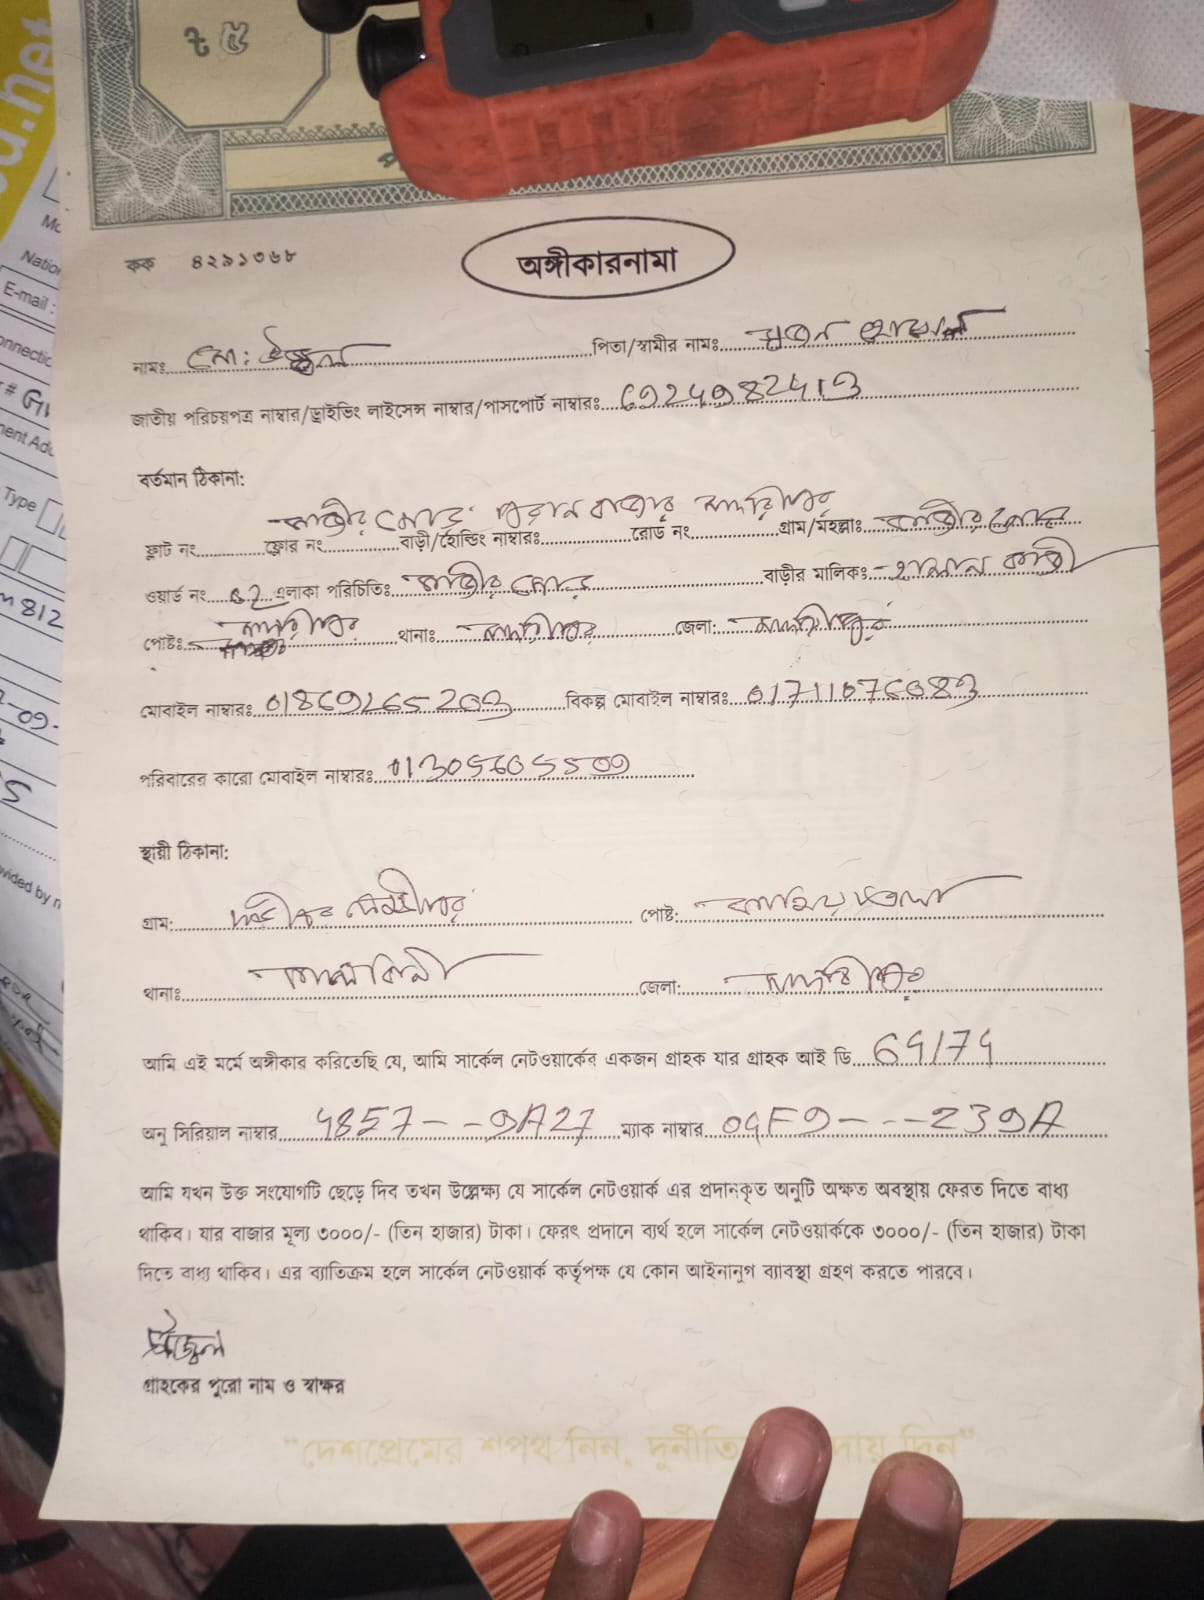 ২৫
কক ৪২৯১৩৬৮
অঙ্গীকারনামা
নামঃ মো: উজ্জ্বল পিতা/স্বামীর নামঃ
জাতীয় পরিচয়পত্র নাম্বার/ড্রাইভিং লাইসেন্স নাম্বার/পাসপোর্ট নাম্বারঃ 6924982413
বর্তমান ঠিকানা:
কাজীর মোড় পুরান বাজার মাদারীপুর
ফ্লাট নং ফ্লোর নং বাড়ী/হোল্ডিং নাম্বারঃ রোড নং গ্রাম/মহল্লাঃ কাজীর মোড়
ওয়ার্ড নং 02 এলাকা পরিচিতিঃ কাজীর মোড় বাড়ীর মালিকঃ কাজী
পোষ্টঃ মাদারীপুর থানাঃ মাদারীপুর জেলা: মাদারীপুর
মোবাইল নাম্বারঃ 01869265203 বিকল্প মোবাইল নাম্বারঃ 01711076083
পরিবারের কারো মোবাইল নাম্বারঃ 01305605509
স্থায়ী ঠিকানা:
গ্রাম: পোষ্ট:
থানাঃ কালকিনী জেলা: মাদারীপুর
আমি এই মর্মে অঙ্গীকার করিতেছি যে, আমি সার্কেল নেটওয়ার্কের একজন গ্রাহক যার গ্রাহক আই ডি 64174
অনু সিরিয়াল নাম্বার 4857---9A27 ম্যাক নাম্বার 09F9----239A
আমি যখন উক্ত সংযোগটি ছেড়ে দিব তখন উল্লেক্ষ্য যে সার্কেল নেটওয়ার্ক এর প্রদানকৃত অনুটি অক্ষত অবস্থায় ফেরত দিতে বাধ্য
থাকিব। যার বাজার মূল্য ৩০০০/- (তিন হাজার) টাকা। ফেরৎ প্রদানে ব্যর্থ হলে সার্কেল নেটওয়ার্ককে ৩০০০/- (তিন হাজার) টাকা
দিতে বাধ্য থাকিব। এর ব্যাতিক্রম হলে সার্কেল নেটওয়ার্ক কর্তৃপক্ষ যে কোন আইনানুগ ব্যাবস্থা গ্রহণ করতে পারবে।
উজ্জ্বল
গ্রাহকের পুরো নাম ও স্বাক্ষর
"দেশপ্রেমের শপথ নিন, দুর্নীতি দায় দিন"